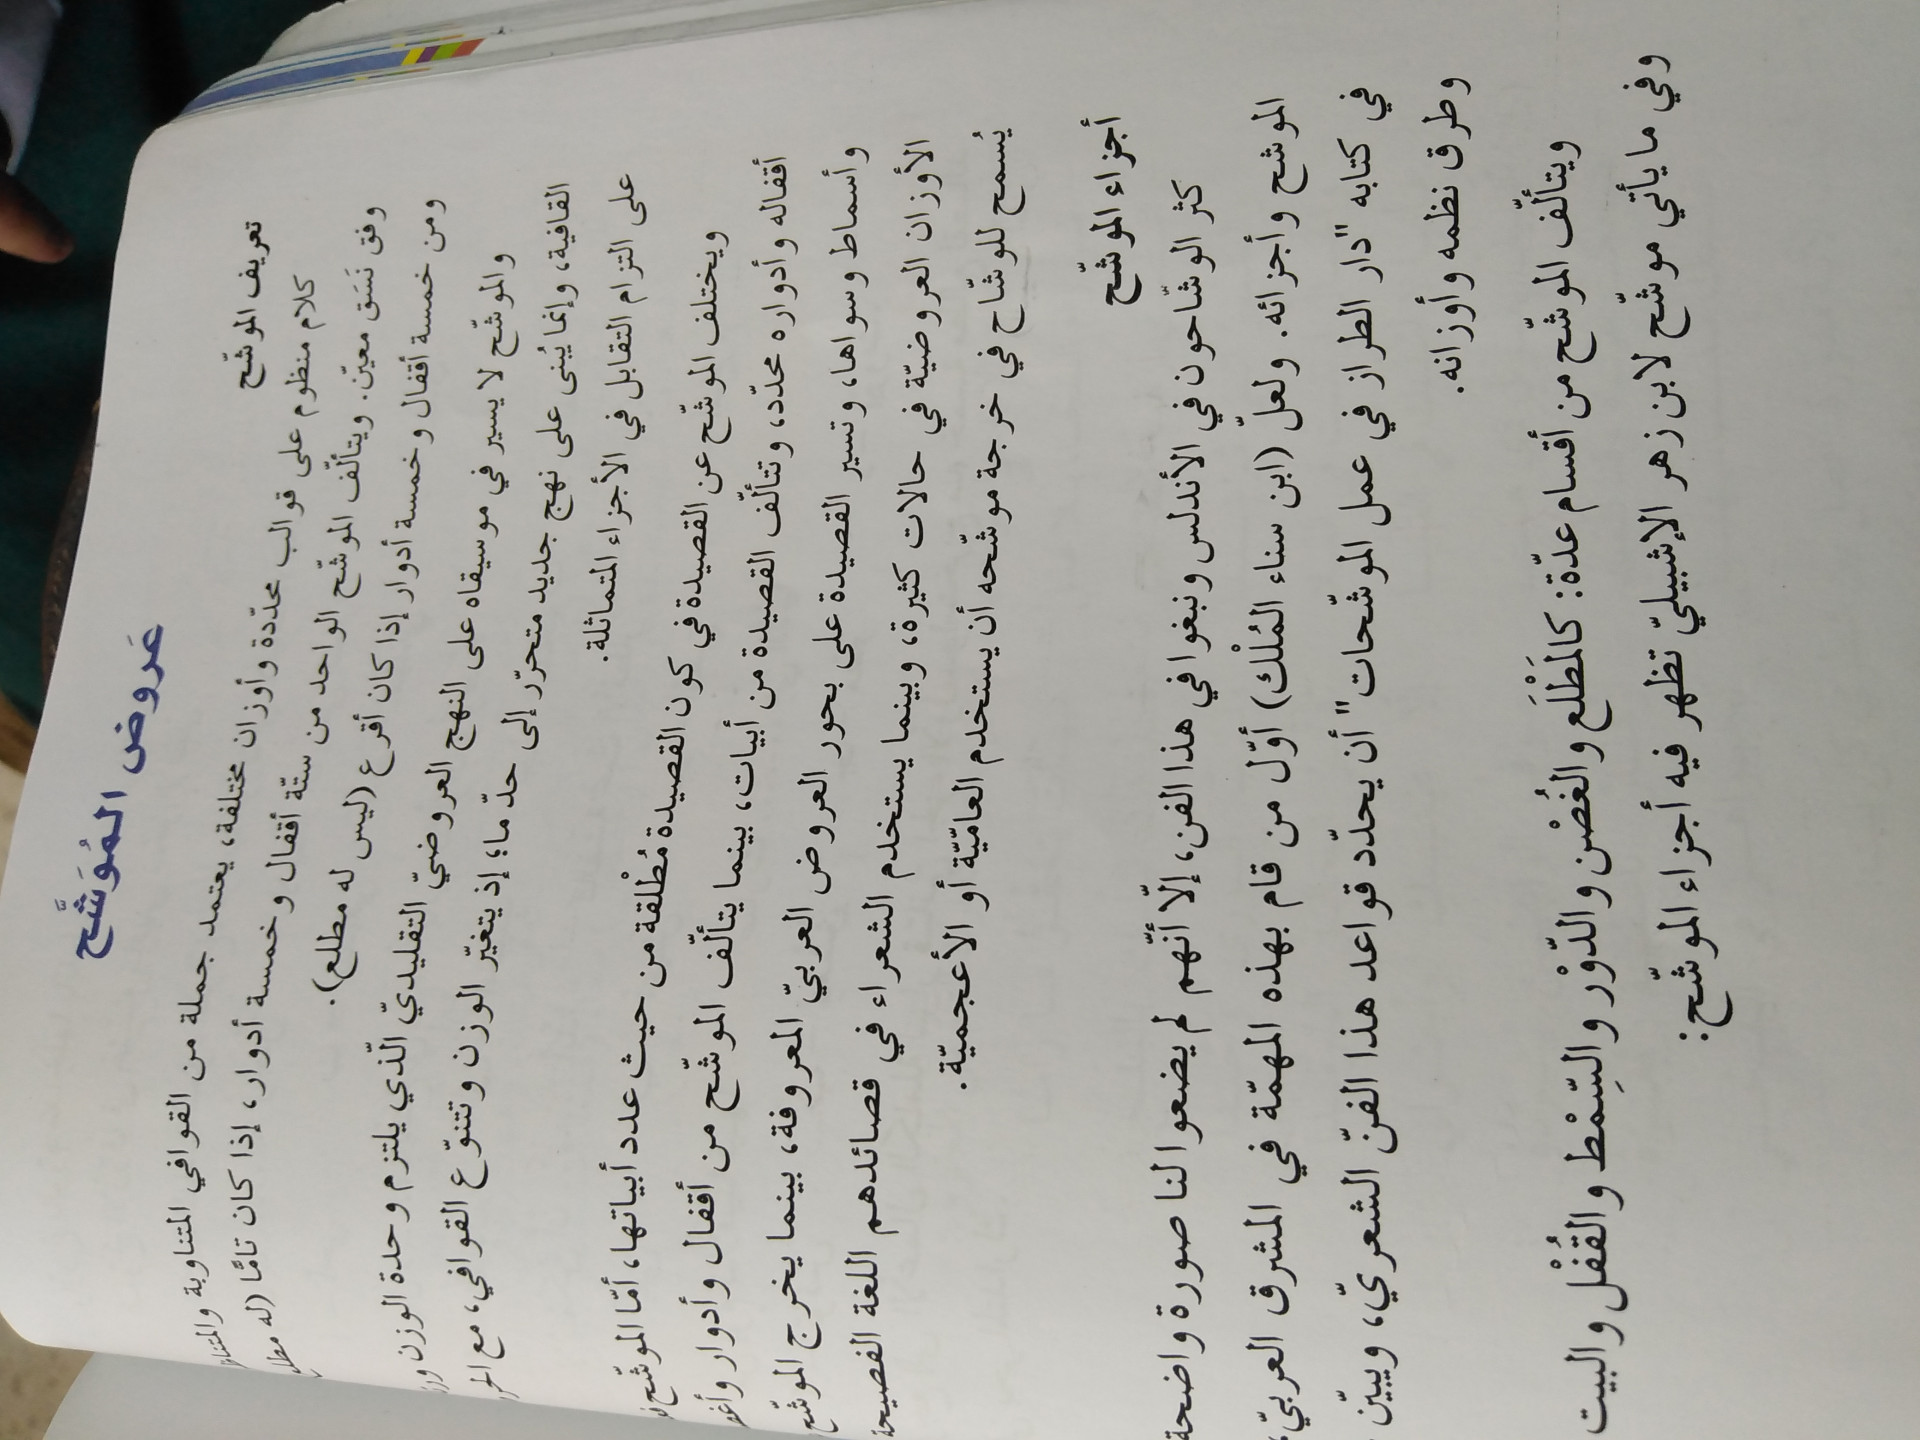 عَروض المُوَشَّح
تعريف الموشّح
كلام منظوم على قوالب محدّدة وأوزان مختلفة، يعتمد جملة من القوافي المتناوبة
وفق نَسَق معيّن. ويتألّف الموشّح الواحد من ستّة أقفال وخمسة أدوار، إذا كان تامًّا (له
ومن خمسة أقفال وخمسة أدوار إذا كان أقرع (ليس له مطلع).
والموشّح لا يسير في موسيقاه على النهج العروضيّ التقليديّ الّذي يلتزم وحدة الوزن
القافية، وإنما يُبنى على نهج جديد متحرّر إلى حدّ ما؛ إذ يتغيّر الوزن وتتنوّع القوافي، مع
على التزام التقابل في الأجزاء المتماثلة.
ويختلف الموشّح عن القصيدة في كون القصيدة مُطْلقة من حيث عدد أبياتها، أمّا الموشّح
أقفاله وأدواره محدّد، وتتألّف القصيدة من أبيات، بينما يتألّف الموشّح من أقفال وأدوار
وأسماط وسواها، وتسير القصيدة على بحور العروض العربيّ المعروفة، بينما يخرج الموشّح
الأوزان العروضيّة في حالات كثيرة، وبينما يستخدم الشعراء في قصائدهم اللغة الفصيحة
يُسمح للوشّاح في خرجة موشّحه أن يستخدم العاميّة أو الأعجميّة.
أجزاء الموشّح
كثر الوشّاحون في الأندلس ونبغوا في هذا الفن، إلّا أنّهم لم يضعوا لنا صورة واضحة
الموشح وأجزائه. ولعلّ (ابن سناء المُلْك) أوّل من قام بهذه المهمّة في المشرق العربيّ،
في كتابه "دار الطراز في عمل الموشّحات" أن يحدّد قواعد هذا الفنّ الشعريّ، ويبيّن
وطرق نظمه وأوزانه.
ويتألّف الموشّح من أقسام عدّة: كالمَطْلَع والغُصْن والدّوْر والسِّمْط والقُفْل والبيت
وفي ما يأتي موشّح لابن زهر الإشبيليّ تظهر فيه أجزاء الموشّح: